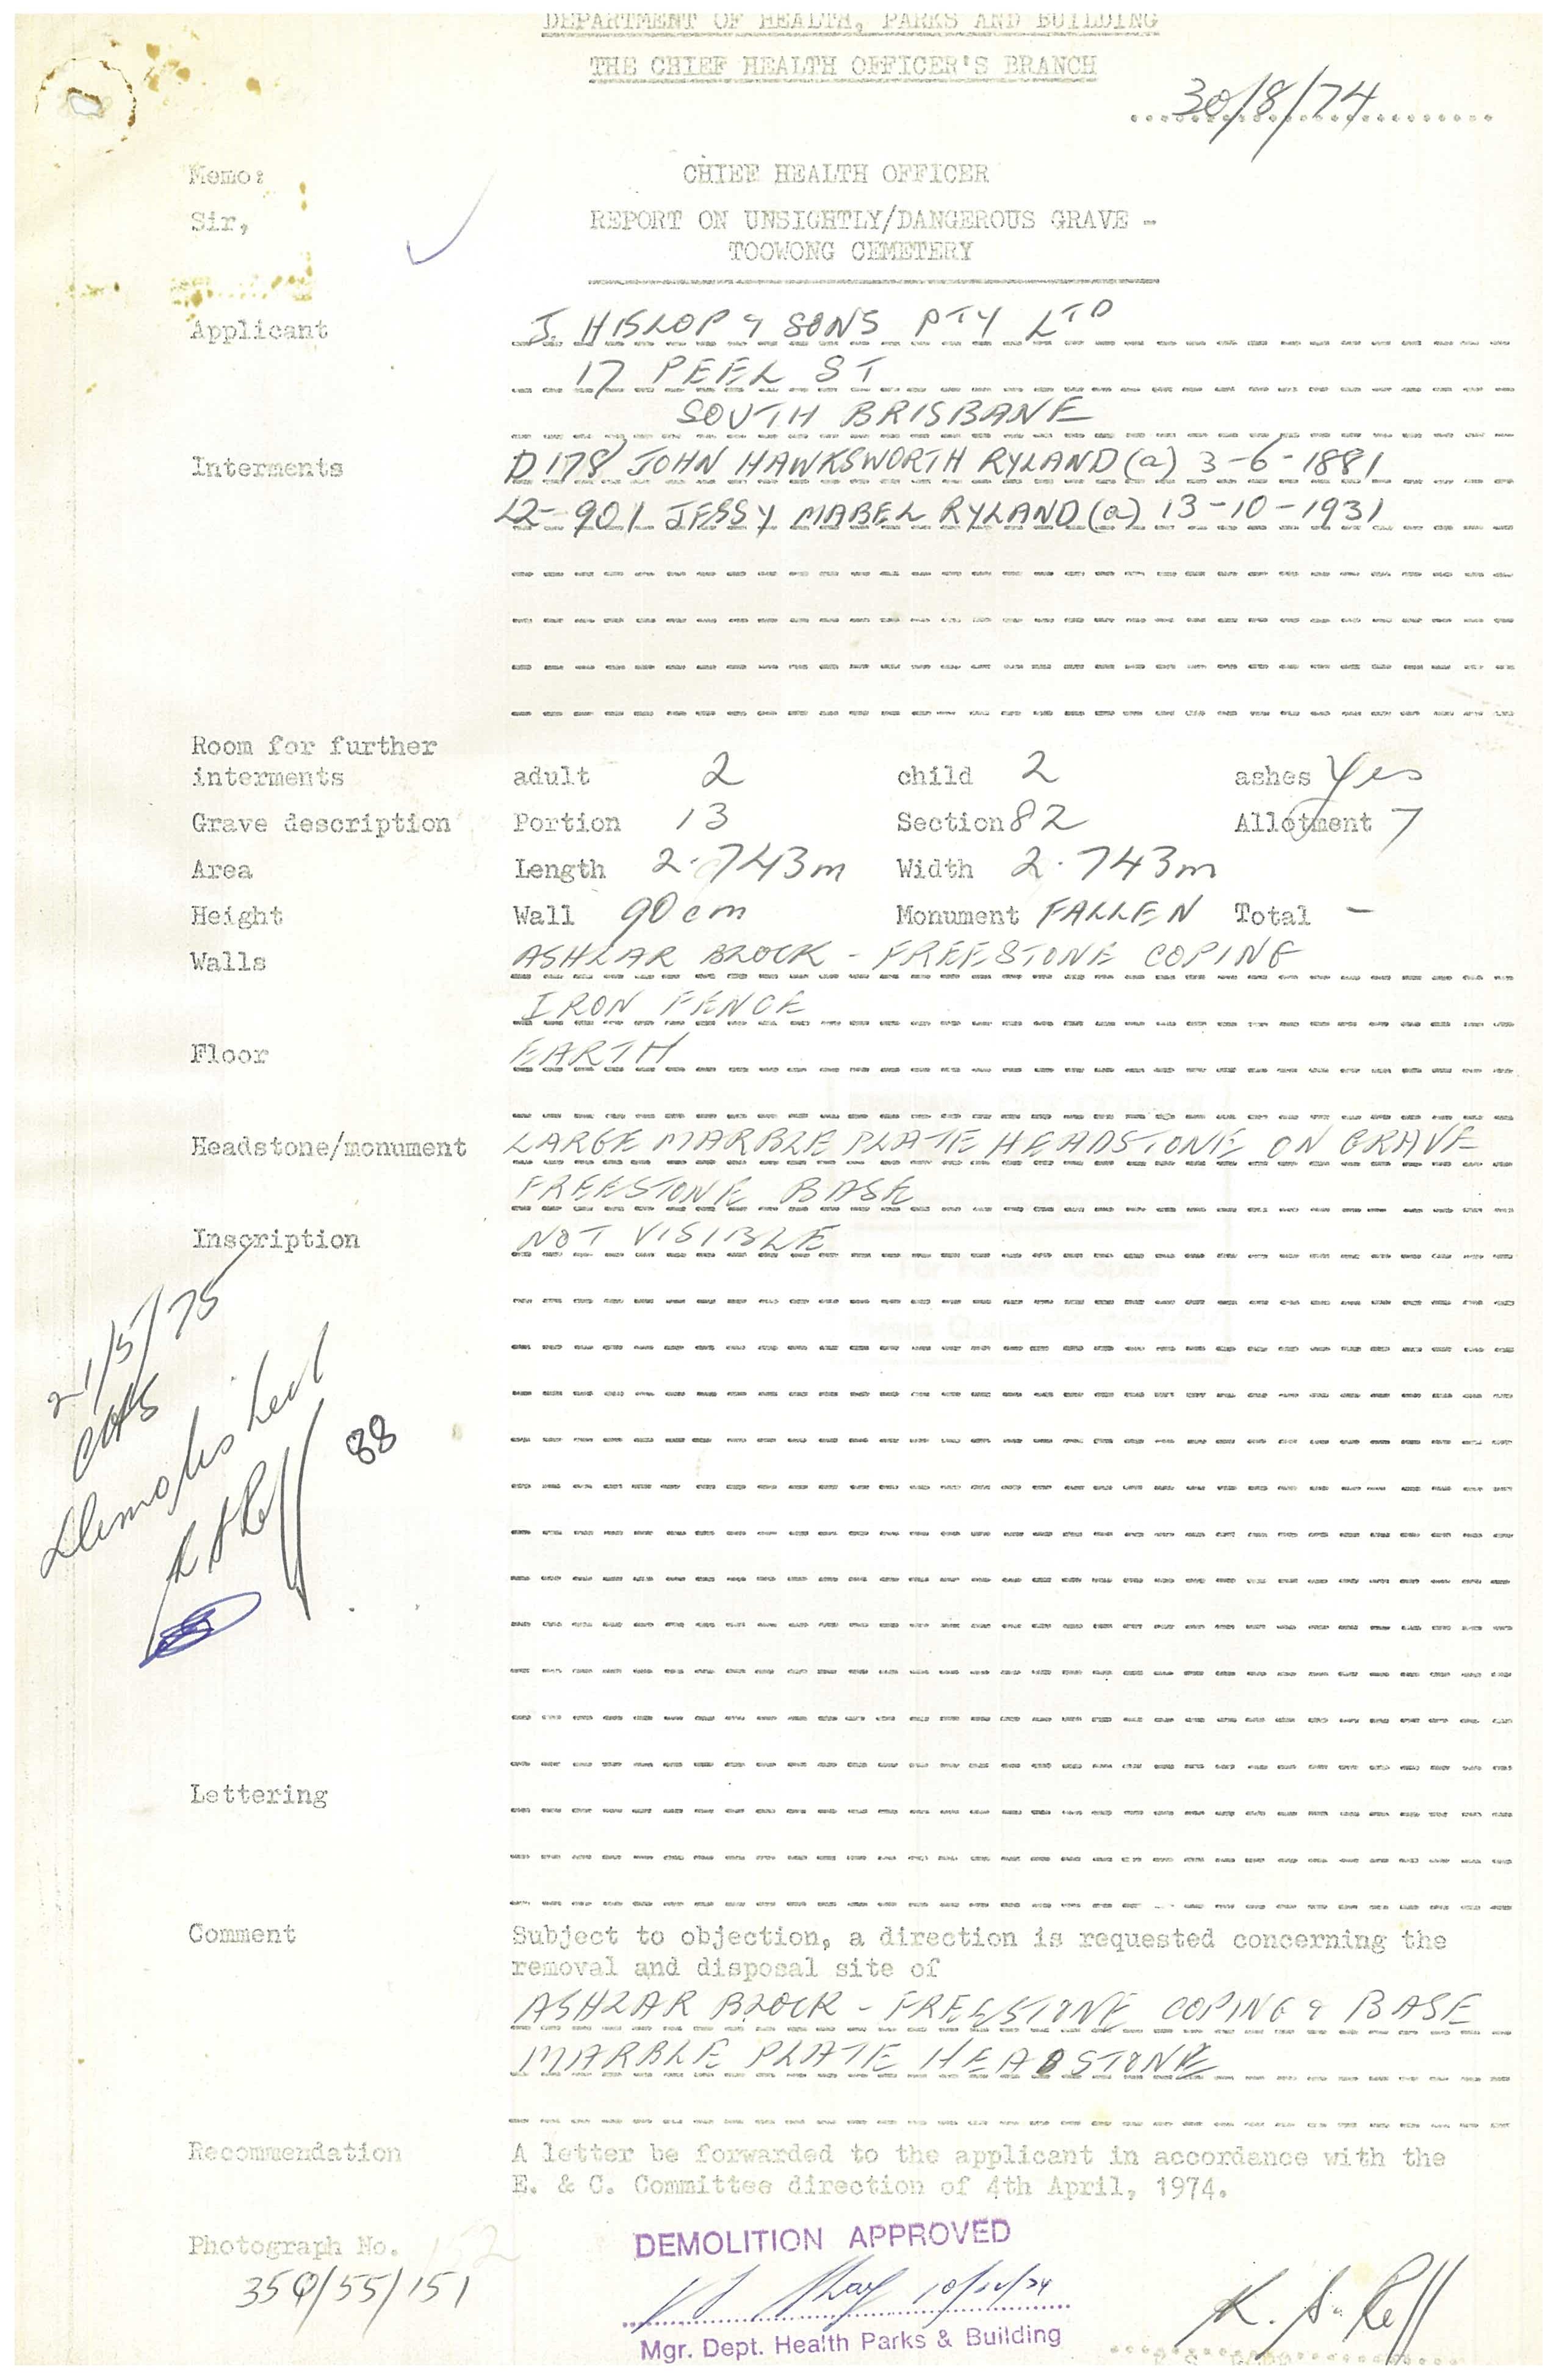 DEPARTMENT OF HEALTH, PARKS AND BUILDING
THE CHIEF HEALTH OFFICER'S BRANCH
30/8/74
Memo: CHIEF HEALTH OFFICER
Sir, REPORT ON UNSIGHTLY/DANGEROUS GRAVE -
TOOWONG CEMETERY
Applicant J. HISLOP & SONS PTY LTD
17 PEEL ST
SOUTH BRISBANE
Interments D178 JOHN HAWKSWORTH RYLAND (a) 3-6-1881
L2-901 JESSY MABEL RYLAND (a) 13-10-1931
Room for further
interments adult 2 child 2 ashes Yes
Grave description Portion 13 Section 82 Allotment 7
Area Length 2.743m Width 2.743m
Height Wall 90cm Monument FALLEN Total -
Walls ASHLAR BLOCK - FREESTONE COPING
IRON FENCE
Floor EARTH
Headstone/monument LARGE MARBLE PLATE HEADSTONE ON GRAVE
FREESTONE BASE
Inscription NOT VISIBLE
21/5/75
Demolished
88
Lettering
Comment Subject to objection, a direction is requested concerning the
removal and disposal site of
ASHLAR BLOCK - FREESTONE COPING & BASE
MARBLE PLATE HEADSTONE
Recommendation A letter be forwarded to the applicant in accordance with the
E. & C. Committee direction of 4th April, 1974.
Photograph No. 152
350/55/151
DEMOLITION APPROVED
10/12/74
Mgr. Dept. Health Parks & Building